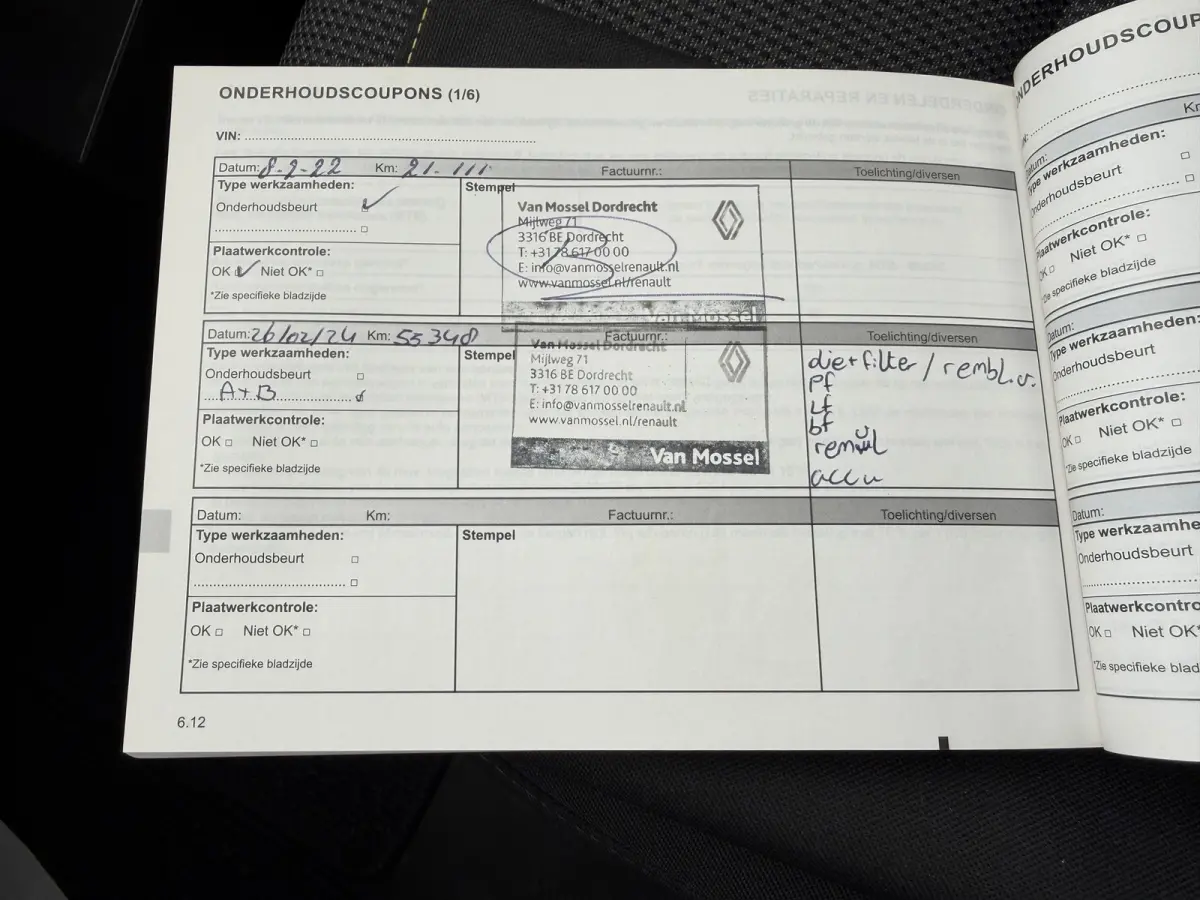 ONDERHOUDSCOUPONS (1/6)
VIN:
Datum: 8-2-22 Km: 21.111 Factuurnr.: Toelichting/diversen
Type werkzaamheden:
Onderhoudsbeurt
Plaatwerkcontrole:
OK Niet OK*
*Zie specifieke bladzijde
Stempel
Van Mossel Dordrecht
Mijlweg 71
3316 BE Dordrecht
T: +31 78 617 00 00
E: info@vanmosselrenault.nl
www.vanmossel.nl/renault
Van Mossel
Datum: 26/02/24 Km: 55348 Factuurnr.: Toelichting/diversen
Type werkzaamheden:
Onderhoudsbeurt
A+B
Plaatwerkcontrole:
OK Niet OK*
*Zie specifieke bladzijde
Stempel
Van Mossel Dordrecht
Mijlweg 71
3316 BE Dordrecht
T: +31 78 617 00 00
E: info@vanmosselrenault.nl
www.vanmossel.nl/renault
Van Mossel
filter / rembl.v.
pf
lf
bf
accu
Datum: Km: Factuurnr.: Toelichting/diversen
Type werkzaamheden:
Onderhoudsbeurt
Plaatwerkcontrole:
OK Niet OK*
*Zie specifieke bladzijde
Stempel
6.12
NDERHOUDSCOUP
Km
Datum:
Type werkzaamheden:
Onderhoudsbeurt
Plaatwerkcontrole:
OK Niet OK*
*Zie specifieke bladzijde
Datum:
Type werkzaamheden:
Onderhoudsbeurt
Plaatwerkcontrole:
OK Niet OK*
*Zie specifieke bladzijde
Datum:
Type werkzaamhe
Onderhoudsbeurt
Plaatwerkcontro
OK Niet OK*
*Zie specifieke blad